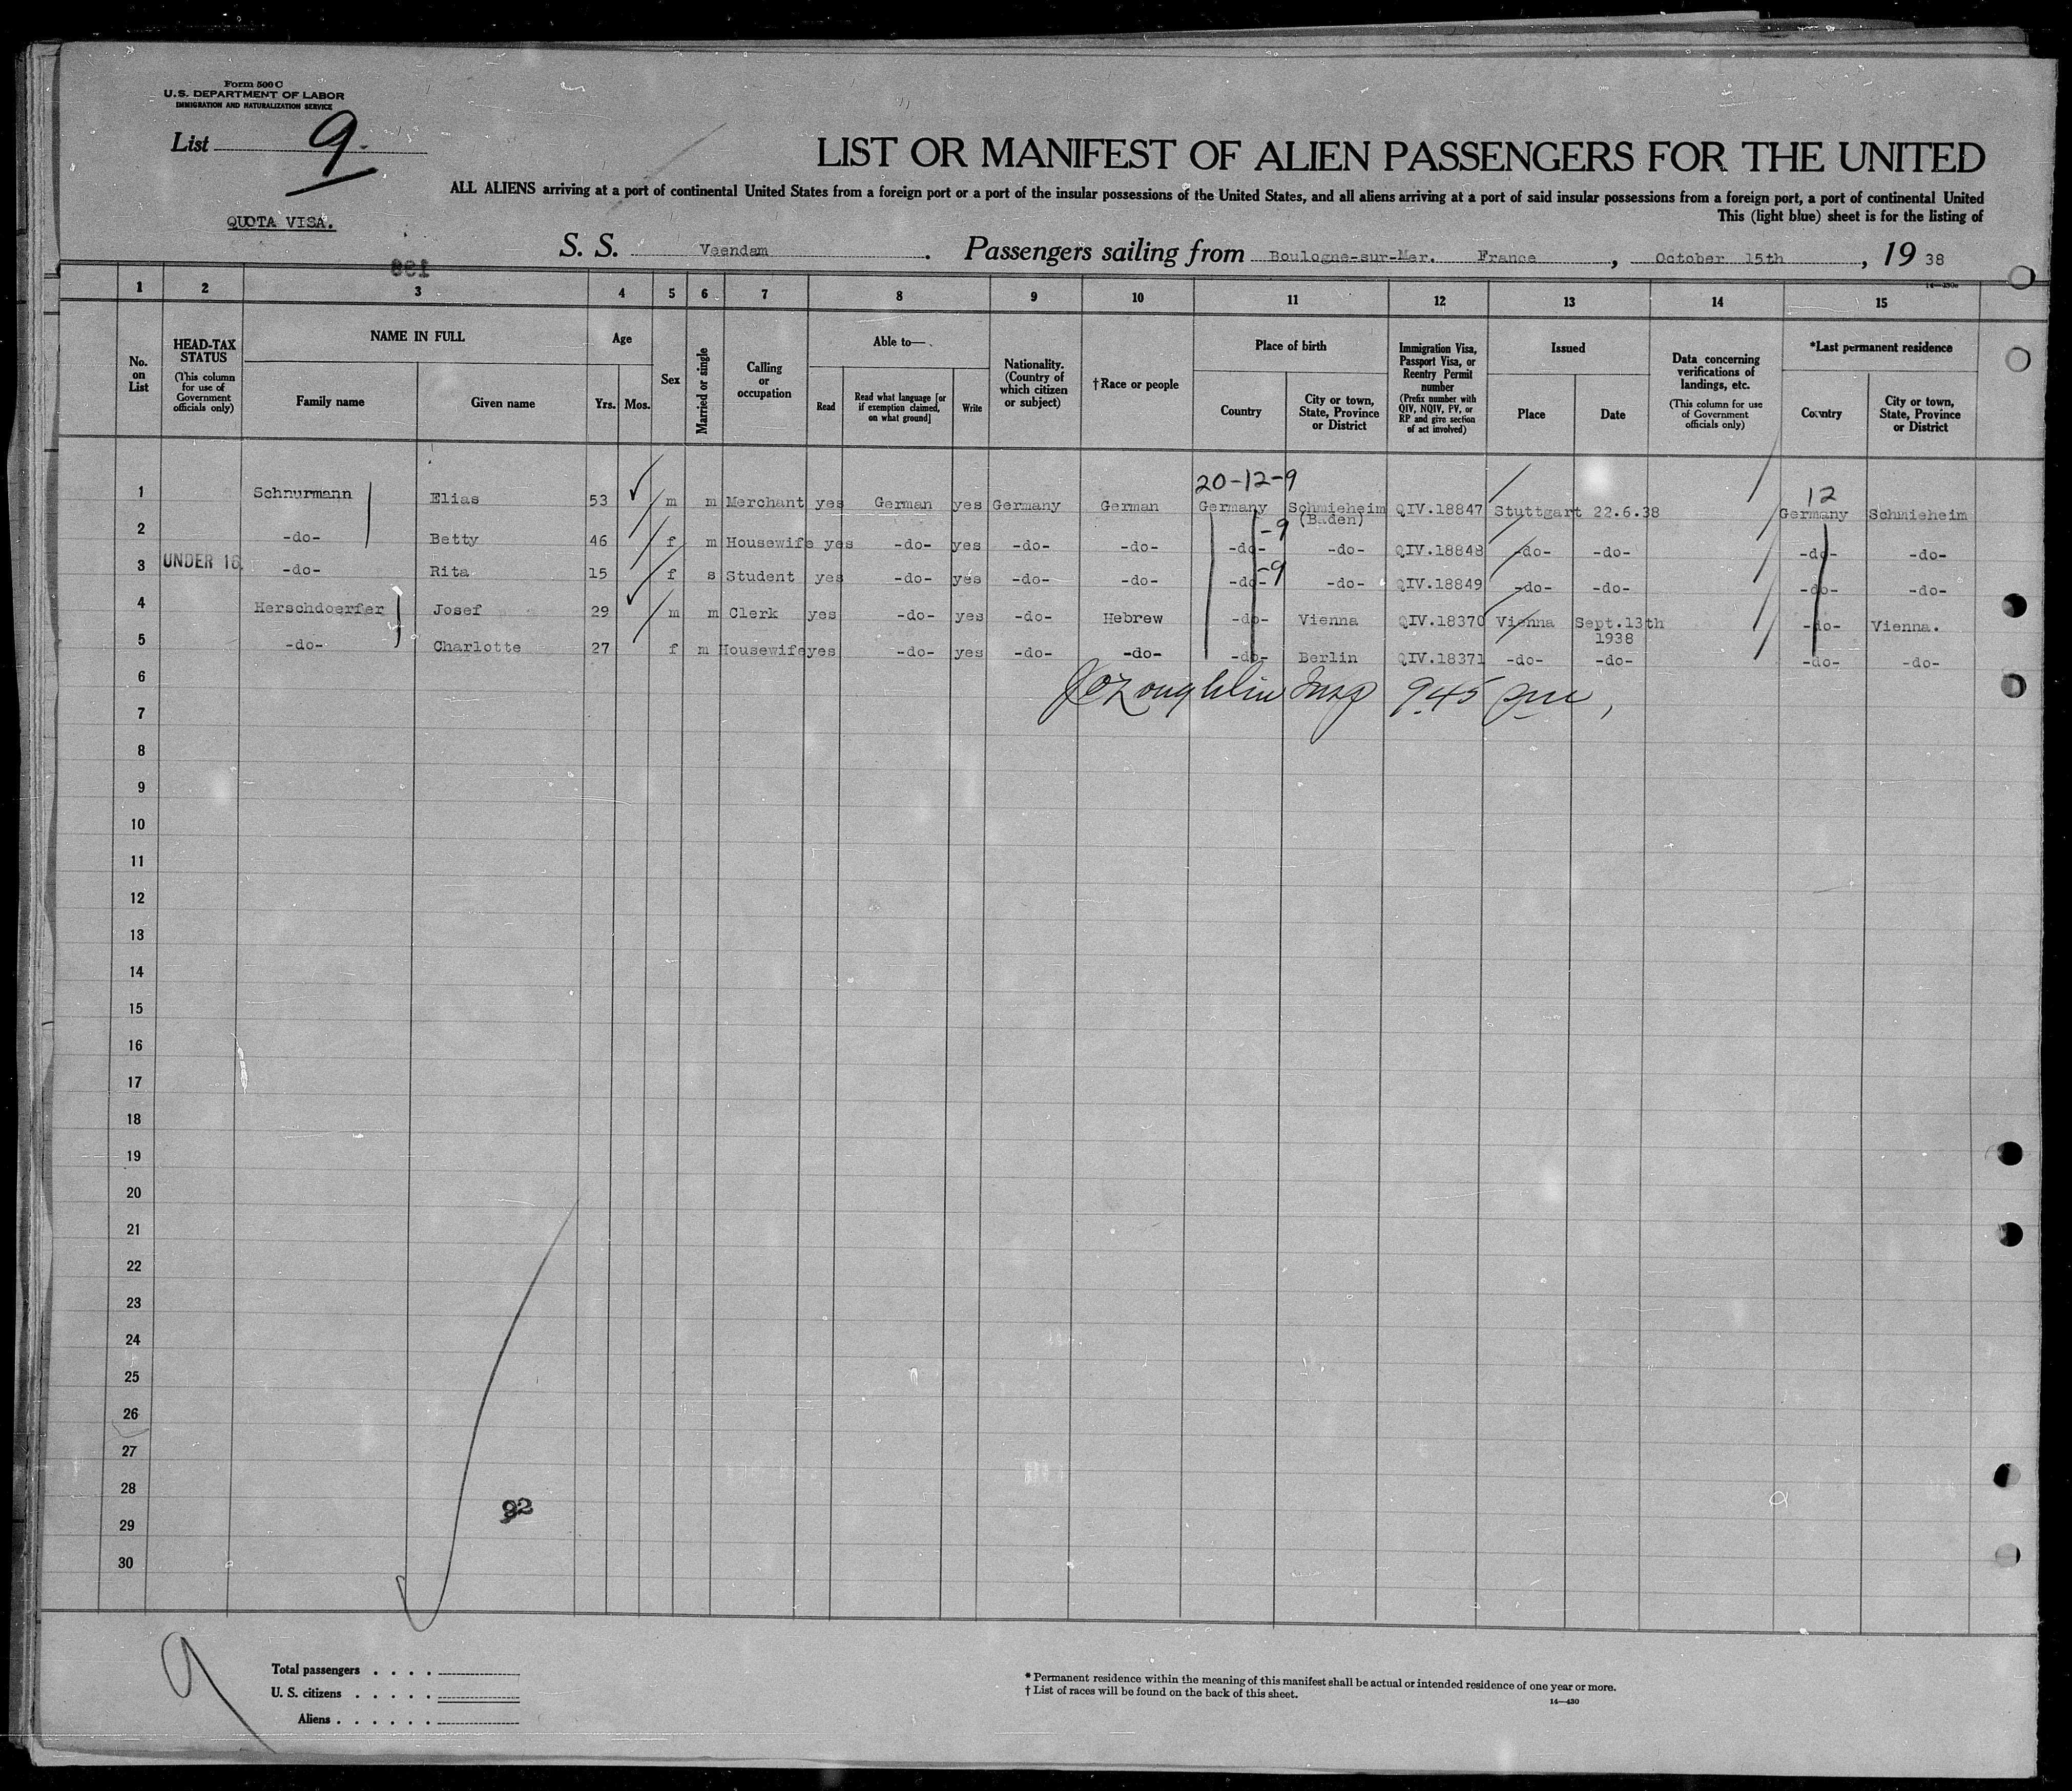 Form 500 C
U.S. DEPARTMENT OF LABOR
IMMIGRATION AND NATURALIZATION SERVICE
List 9.
LIST OR MANIFEST OF ALIEN PASSENGERS FOR THE UNITED
ALL ALIENS arriving at a port of continental United States from a foreign port or a port of the insular possessions of the United States, and all aliens arriving at a port of said insular possessions from a foreign port, a port of continental United
This (light blue) sheet is for the listing of
QUOTA VISA.
S. S. Veendam. Passengers sailing from Boulogne-sur-Mer. France, October 15th, 19 38
1 2 3 4 5 6 7 8 9 10 11 12 13 14 15
No. on List
HEAD-TAX STATUS (This column for use of Government officials only)
NAME IN FULL
Family name
Given name
Age
Yrs. Mos.
Sex
Married or single
Calling or occupation
Able to—
Read
Read what language [or if exemption claimed, on what ground]
Write
Nationality. (Country of which citizen or subject)
†Race or people
Place of birth
Country
City or town, State, Province or District
Immigration Visa, Passport Visa, or Reentry Permit number (Prefix number with QIV, NQIV, PV, or RP and give section of act involved)
Issued
Place
Date
Data concerning verifications of landings, etc. (This column for use of Government officials only)
*Last permanent residence
Country
City or town, State, Province or District
20-12-9
12
1 Schnurmann Elias 53 m m Merchant yes German yes Germany German Germany Schmieheim (Baden) QIV.18847 Stuttgart 22.6.38 Germany Schmieheim
-9
2 -do- Betty 46 f m Housewife yes -do- yes -do- -do- -do- -do- QIV.18848 -do- -do- -do- -do-
-9
3 UNDER 16. -do- Rita 15 f s Student yes -do- yes -do- -do- -do- -do- QIV.18849 -do- -do- -do- -do-
4 Herschdoerfer Josef 29 m m Clerk yes -do- yes -do- Hebrew -do- Vienna QIV.18370 Vienna Sept.13th 1938 -do- Vienna.
5 -do- Charlotte 27 f m Housewife yes -do- yes -do- -do- -do- Berlin QIV.18371 -do- -do- -do- -do-
6 Loughlin Insp 945 pm
7
8
9
10
11
12
13
14
15
16
17
18
19
20
21
22
23
24
25
26
27
28
92
29
30
9
Total passengers . . . .
U. S. citizens . . . . .
Aliens . . . . . .
* Permanent residence within the meaning of this manifest shall be actual or intended residence of one year or more.
† List of races will be found on the back of this sheet.
14—430